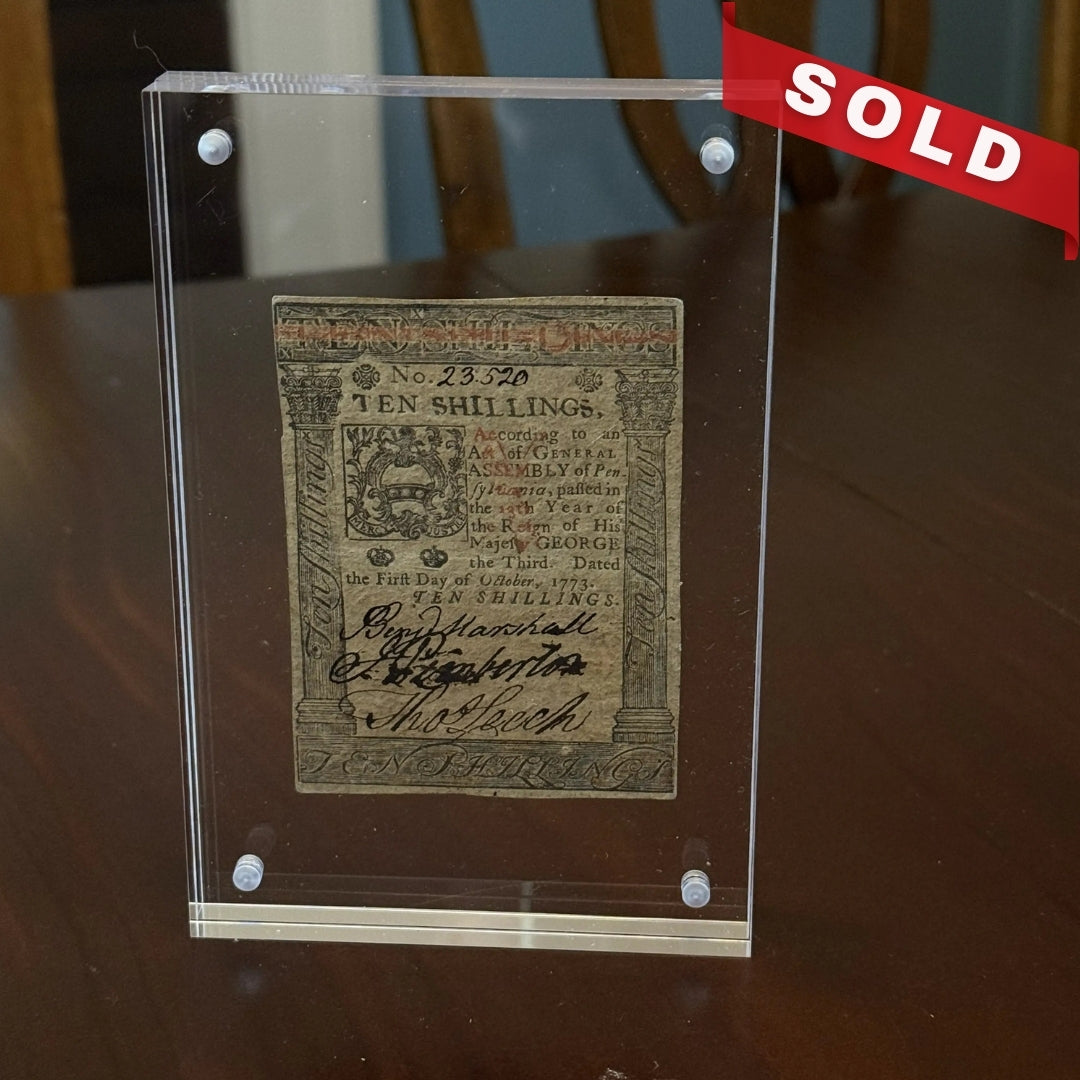 SOLD
TEN SHILLINGS
No. 23.520
TEN SHILLINGS,
According to an
Act of GENERAL
ASSEMBLY of Pen-
ſylvania, paſſed in
the 13th Year of
the Reign of His
Majeſty GEORGE
the Third. Dated
the Firſt Day of October, 1773.
TEN SHILLINGS.
MERCY JUSTICE
Ten Shillings
Ten Shillings
Benj Marshall
Pemberton
Tho Leech
TEN SHILLINGS